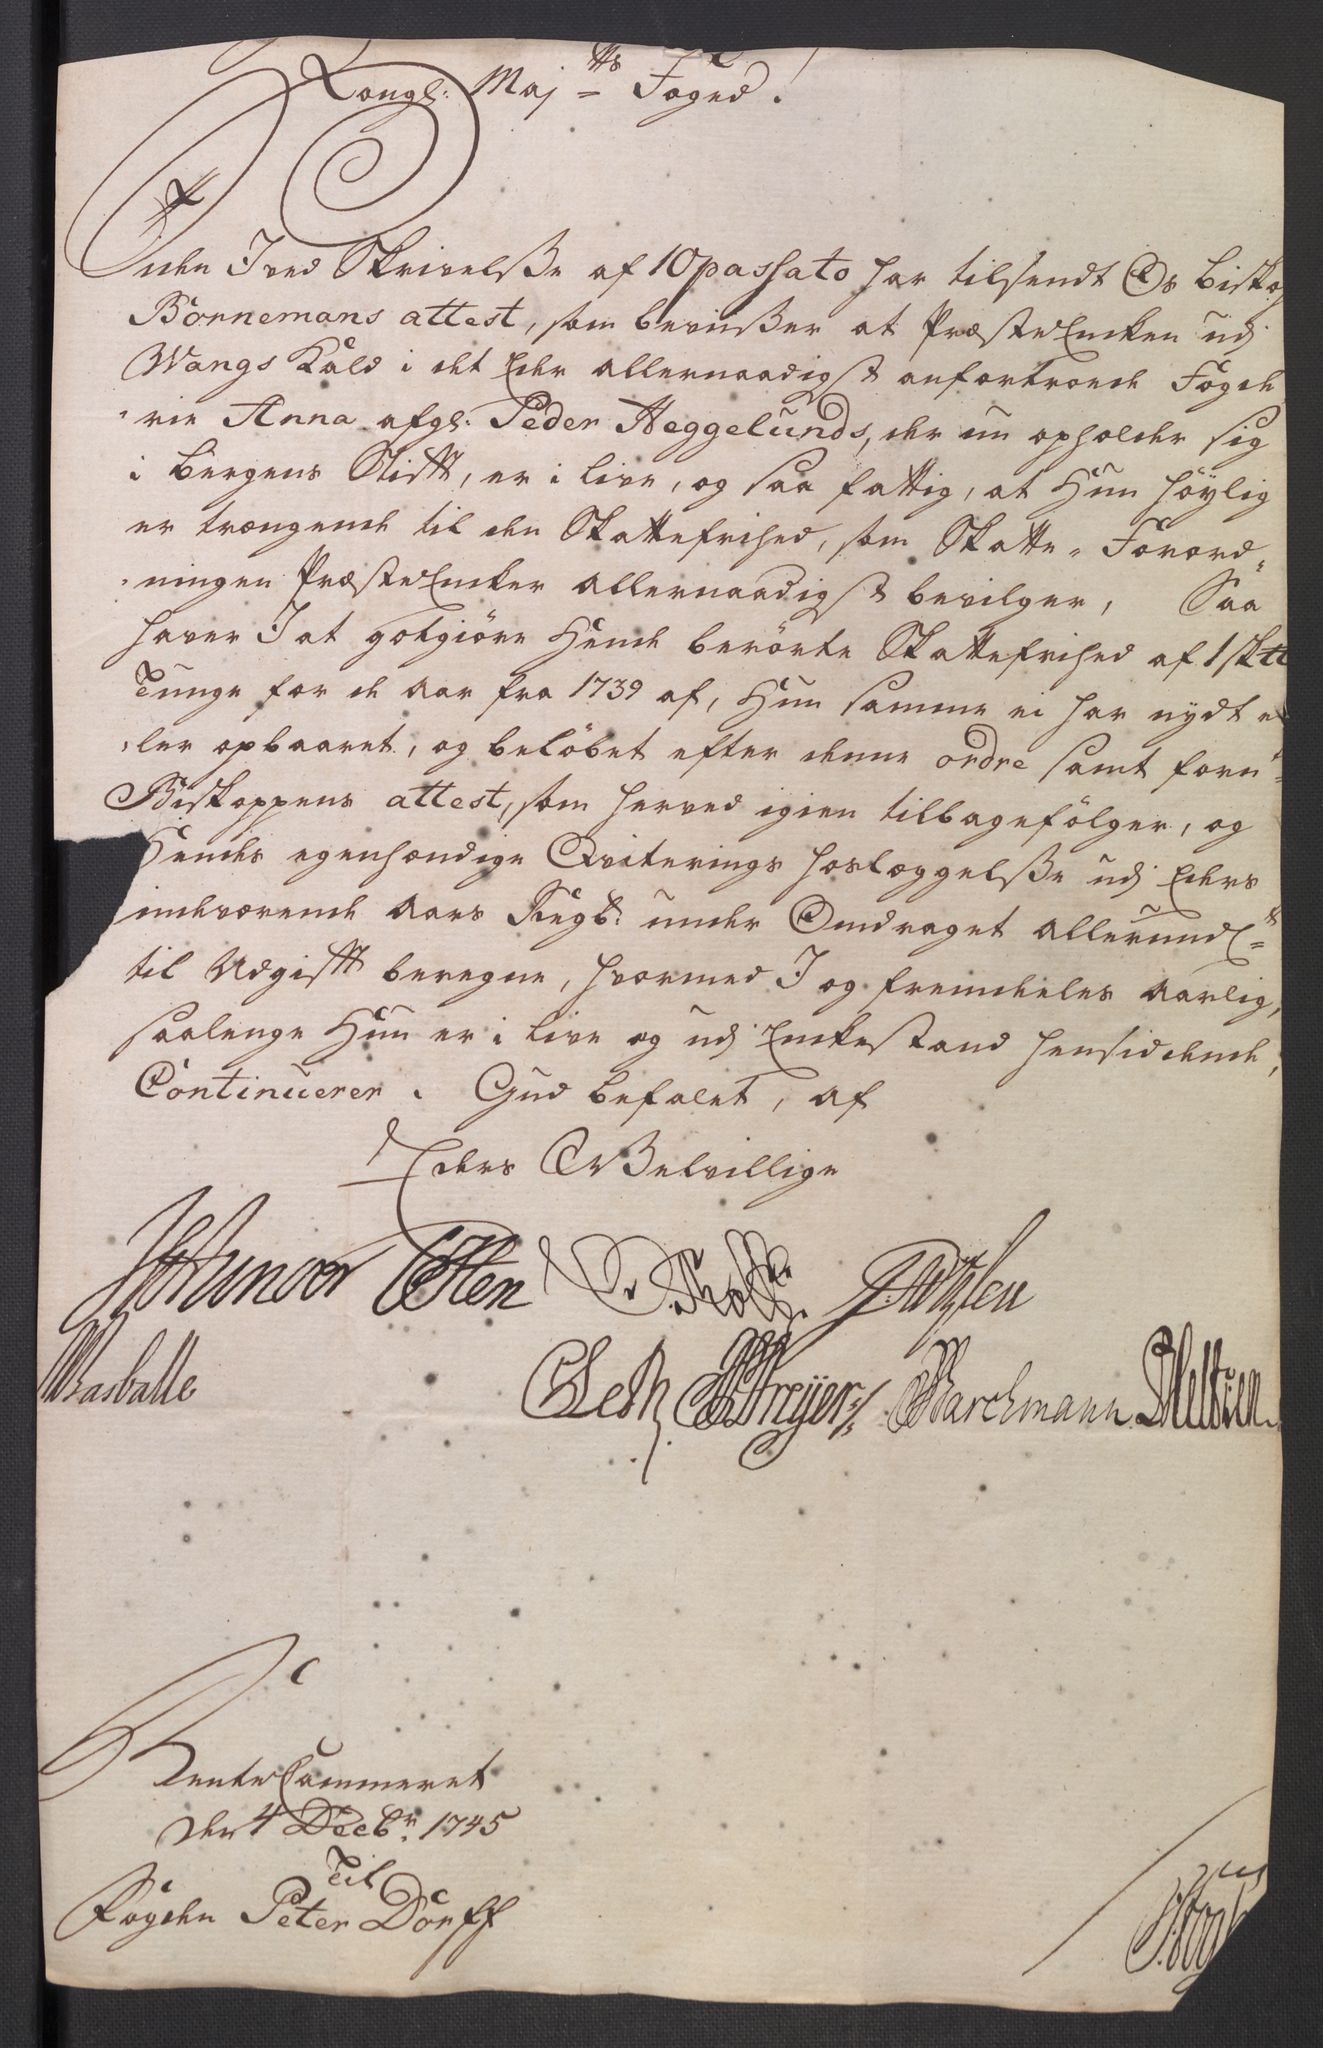 Kongl: Maj:ts Foged!
Eders I ved Skrivelsße af 10 passato har tilsendt Os Biskop
Bornemans attest, som bevißer at PræsteEncken udj
Wangs Kald i det Eder allernaadigst anfortroede Fogde-
rie Anna afgl: Peder Heggelunds, der nu opholder sig
i Bergens Stift, er i live, og saa fattig, at Hun höylig
er trængende til den Skattefrihed, som Skatte-Forord-
ningen PræsteEncker allernaadigst bevilger, Saa
haver I at gotgiöre Hende berörte Skattefrihed af 1 skatte
Tunge for de Aar fra 1739 af, Hun samme ei har nydt el-
ler opbaaret, og belöbet efter denne ordre samt forn:
Biskoppens attest, som herved igien tilbagefölger, og
Hendes egenhændige Qviterings hoslæggelsße udj Eders
indeværende Aars Regsk: under Omdraget allerundl:
til Udgift beregne, hvormed I og fremdeles Aarlig,
saalenge Hun er i live og udj Enckestand hensiddende,
Continuerer. Gud befalet, af
Eders Velvillige
Holten
Basballe Barchmann
RenteCammeret
den 4 Decbr: 1745
Til
Fogden Peter Dorff